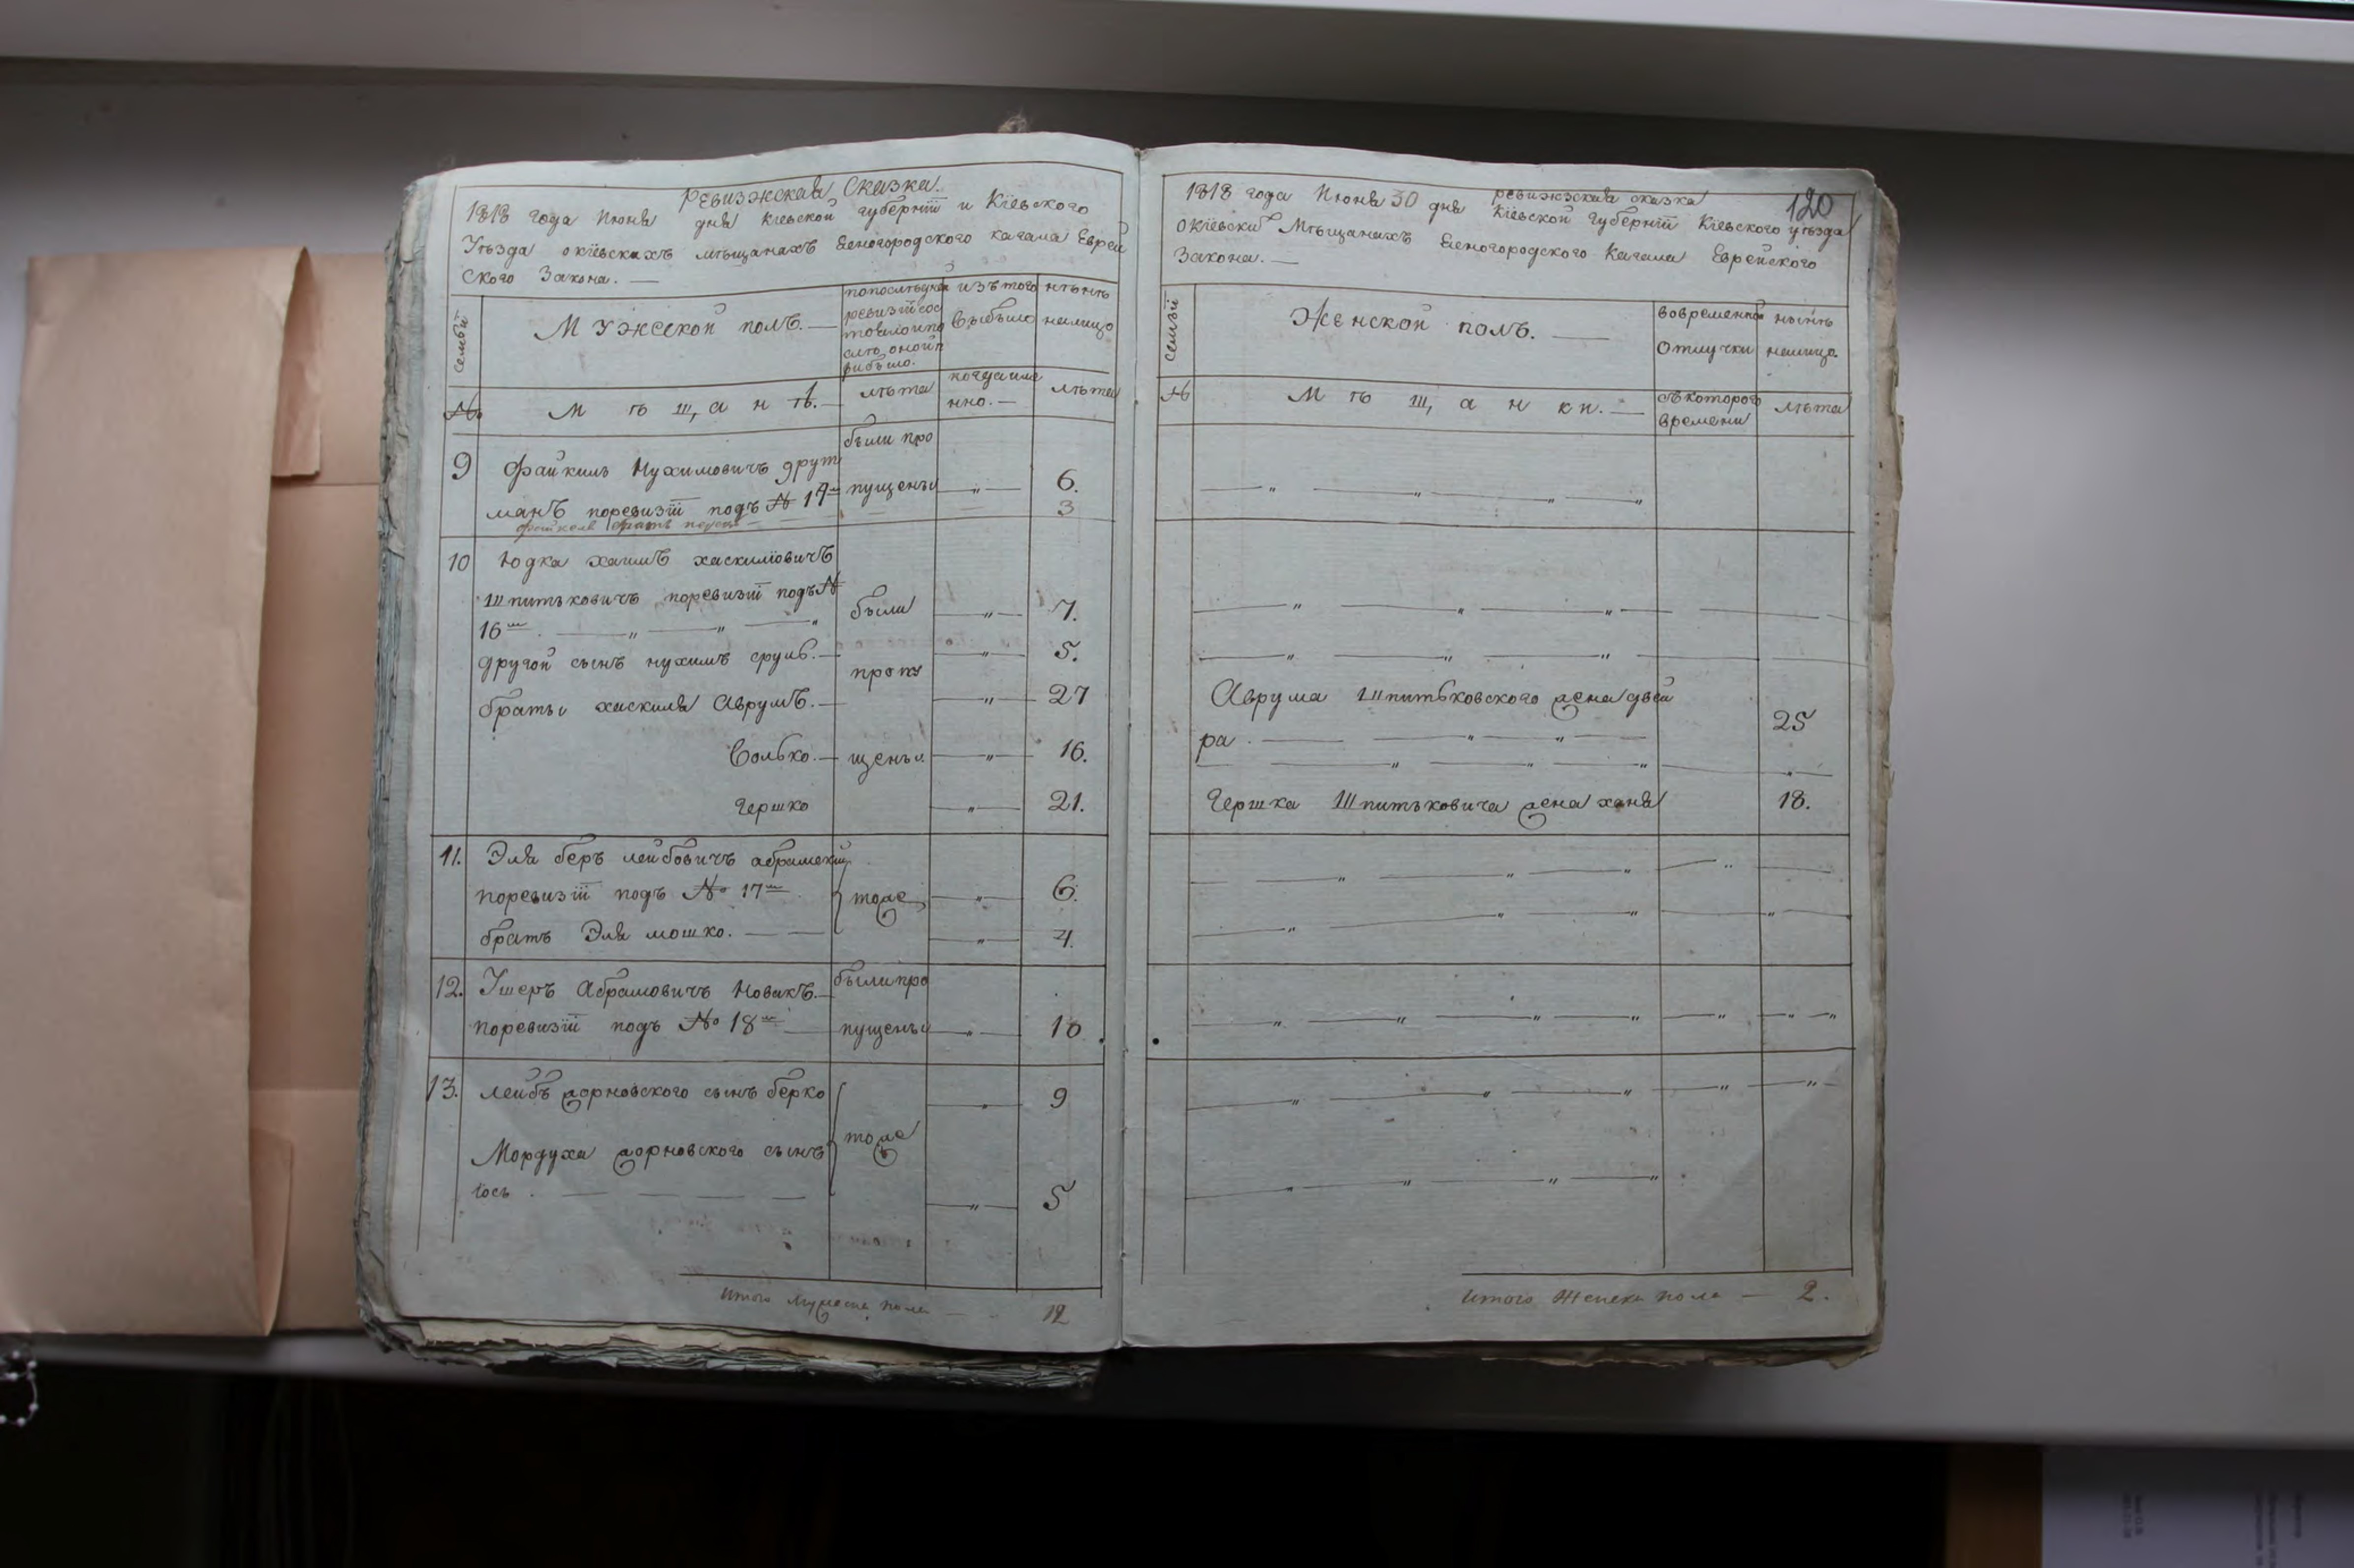 Ревизэкская Сказка.
1818 года Июня дня Кіевской губерніи и Кіевского
Уѣзда о кіевскихъ мѣщанахъ Бѣлогородского кагала Еврей
ского Закона. —
семьи
Мужеской полъ. —
попослѣдней
ревизіи сос
тояло ипо
слѣ оной п
рибыло.
изъ того
выбыло
нынѣ
налицо
№
Мѣщанѣ. —
лѣта
когда име
нно. —
лѣта
9 Файкиль Нухимовичъ друт
манъ поревизіи подъ № 14 были про
пущены — „ — 6.
3
10 Юдка хаимъ хаскилiовичъ
Шпитьковичъ поревизіи подъ №
16 — „ — „ — „ были — „ — 7.
другой сынъ нухимъ сруль. — пропу — „ — 5.
братья хаскиля Аврумъ. — — „ — 27
Волько. — щены. — „ — 16.
Гершко — „ — 21.
11. Эля беръ лейбовичъ абрамскій
поревизіи подъ № 17 тоже — „ — 6.
братъ Эля мошко. — — — „ — 4.
12. Ушеръ Абрамовичъ Новакъ. — были про
поревизіи подъ № 18 — пущены — „ — 10
13. лейбъ жорновского сынъ берко — „ — 9
Мордуха жорновского сынъ тоже
Іось. — — — — — „ — 5
Итого мужеска пола — — 12
120
ревижзская сказка
1818 года Июня 30 дня Кіевской губерніи Кіевского уѣзда
о Кіевски Мѣщанахъ Бѣлогородского Кагала Еврейского
Закона. —
семьи
Женской полъ. —
вовременной
отлучки
нынѣ
налицо
№
Мѣщанки. —
съ которого
времени
лѣта
Аврума Шпитьковского жена двей
ра. — — „ — „ — 25
Гершка Шпитьковича жена ханя 18.
Итого Женска пола — 2.